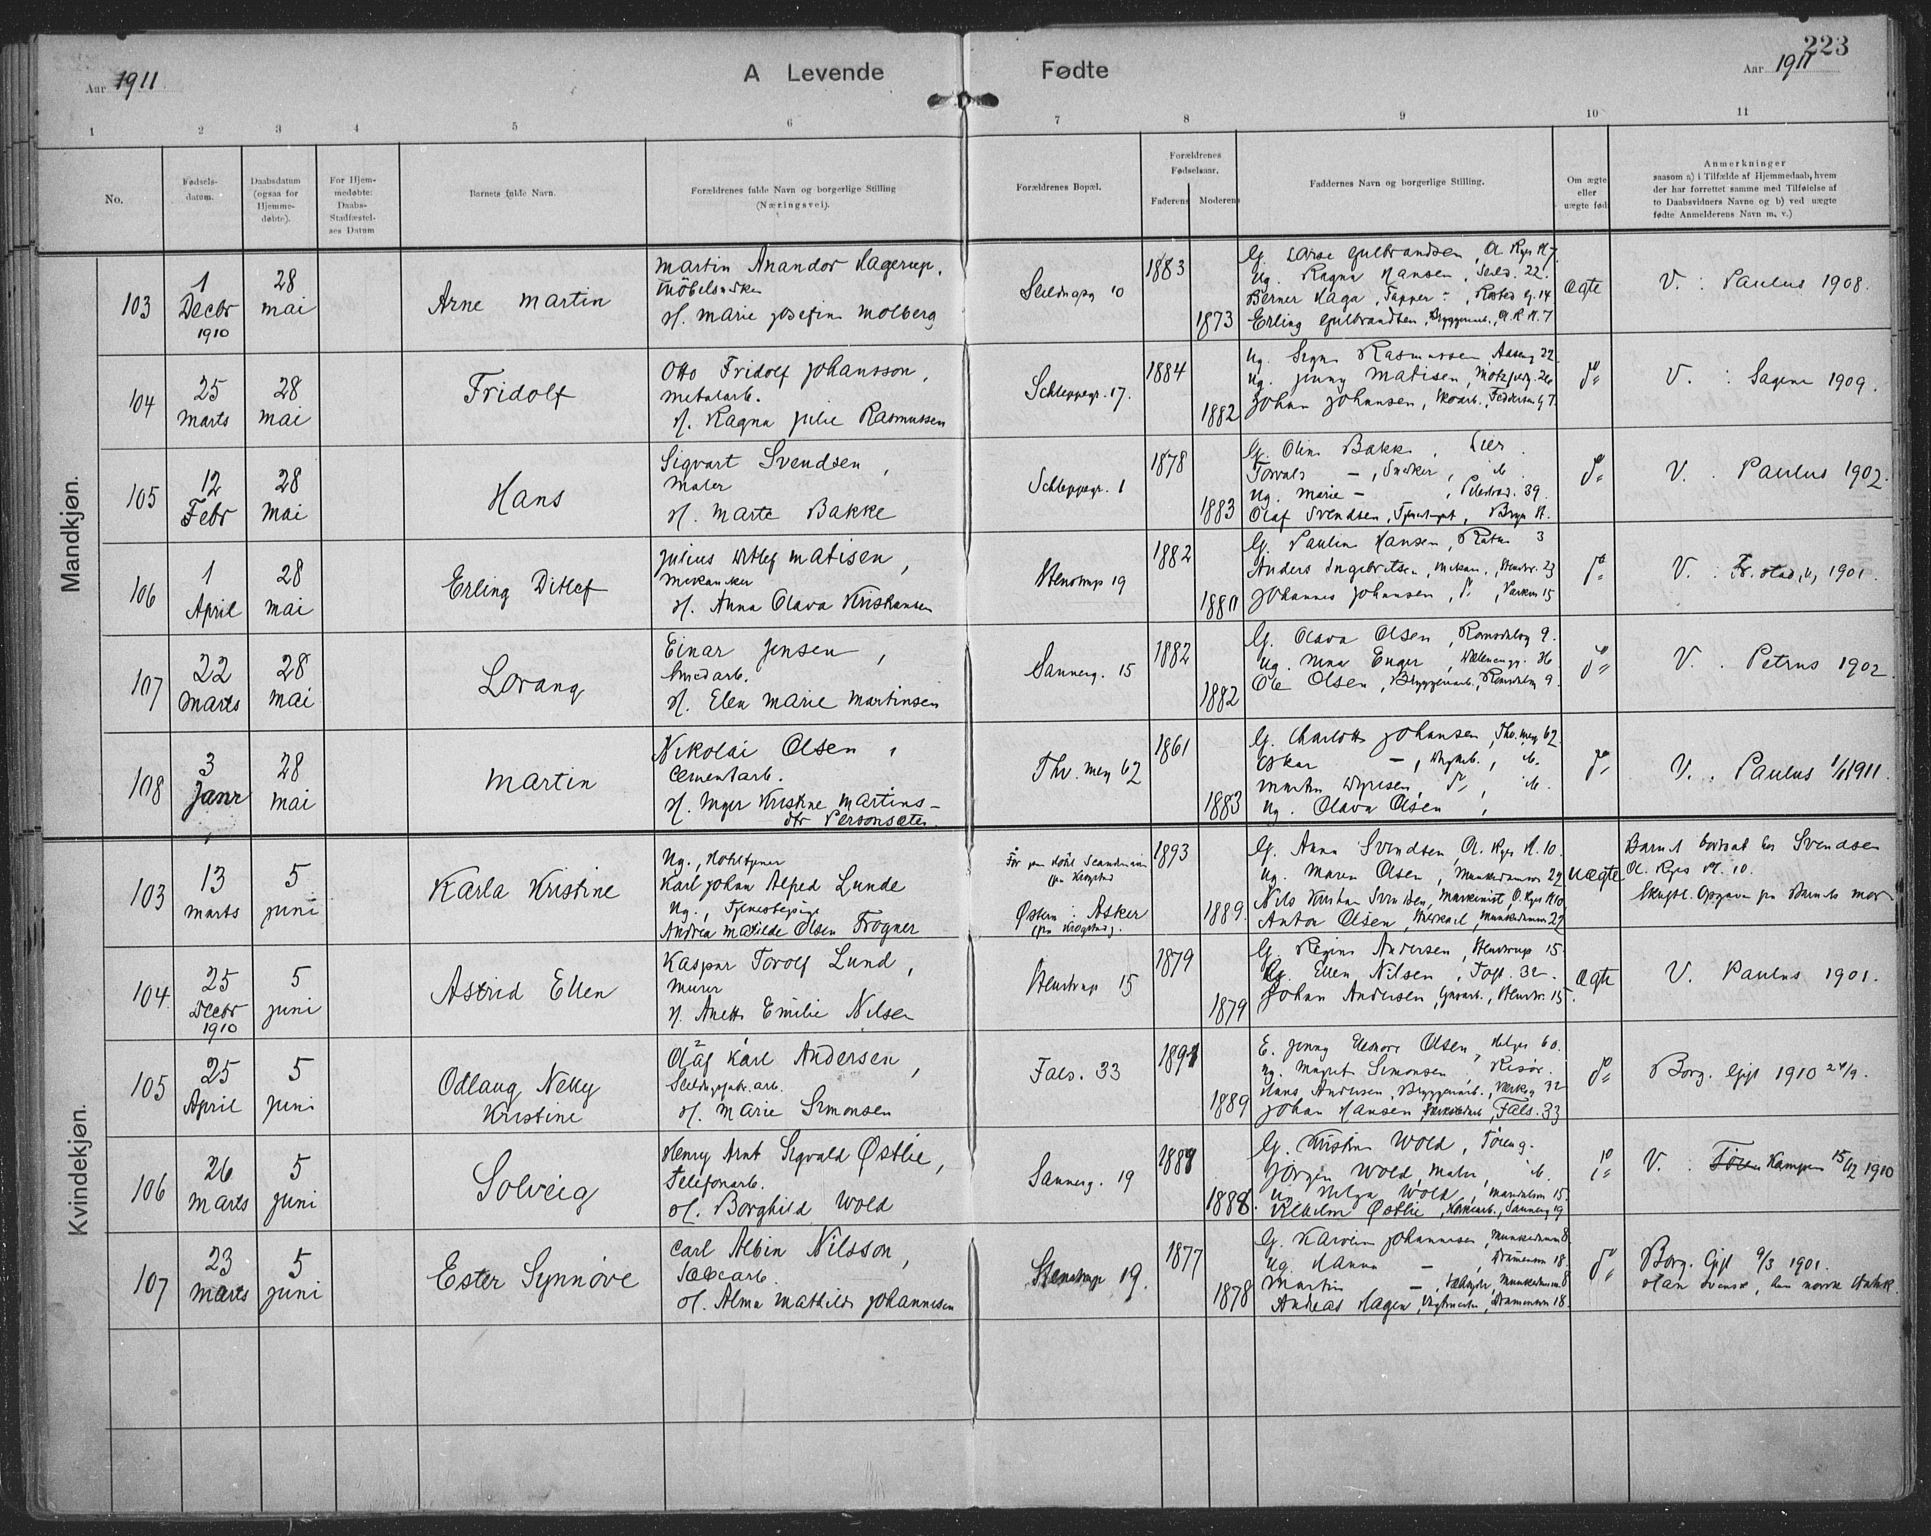 223
Aar 1911
A Levende Fødte
Aar 1911
1 2 3 4 5 6 7 8 9 10 11
No.
Fødsels-
datum.
Daabsdatum
(ogsaa for
Hjemme-
døbte).
For Hjem-
medøbte:
Daabs-
Stadfæstel-
ses Datum
Barnets fulde Navn.
Forældrenes fulde Navn og borgerlige Stilling
(Næringsvei).
Forældrenes Bopæl.
Forældrenes
Fødselsaar.
Faderens Moderens
Faddernes Navn og borgerlige Stilling.
Om ægte
eller
uægte født
Anmerkninger
saasom a) i Tilfælde af Hjemmedaab, hvem
der har forrettet samme med Tilføielse af
to Daabsvidners Navne og b) ved uægte
fødte Anmelderens Navn m. v.)
Mandkjøn.
103
1
Decbr
1910
28
mai
Arne Martin
Martin Anandor Hagerup,
Møbelsnedker
H. Marie Josefine Molberg
10
1883
1873
G. Gulbrandsen, A. Ryes Pl. 7
Ug. Ragna Hansen, Seild. 22.
Berner Haga, Tapper
Erling Gulbrandsen, Bryggeriarb., A. R. Pl. 7
ægte
V. : Paulus 1908.
104
25
Marts
28
mai
Fridolf
Otto Fridolf Johansson,
Metalarb.
H. Ragna Julie Rasmussen
Schleppegr. 17.
1884
1882
Ug. Signe Rasmussen, 22.
Ug. Jenny Matisen, 26
Johan Johansen, Skoarb., 7.
do
V. : Sagene 1909.
105
12
Febr
28
mai
Hans
Sigvart Svendsen,
Maler
H. Marte Bakke
Schleppegr. 1
1878
1883
G. Oline Bakke, Lier.
Torvald —, Snedker, ib.
Ug. Marie —, Pilestræd. 39.
Olaf Svendsen,
do
V. Paulus 1902.
106
1
April
28
mai
Erling Ditlef
Julius Ditlef Matisen,
Mekaniker
H. Anna Olava Kristiansen
Stenstrup 19
1882
1880
G. Pauline Hansen, 3
Anders Ingebretsen, Mekan., Stenstr. 23
Johannes Johansen, do, 15
do
V. 1901.
107
22
Marts
28
mai
Lorang
Einar Jensen,
Smedarb.
H. Elen Marie Martinsen
Sannerg. 15
1882
1882
G. Olava Olsen, Romsdalsg 9.
Ug. Nina Enger, Vaalerengg. 36
Ole Olsen, Bryggeriarb., Romsdalsg 9.
do
V. : Petrus 1902.
108
3
Janr
28
mai
Martin
Nikolai Olsen,
Cementarb.
H. Inger Kristine Martins-
dtr Personsæter.
Thv. Mey 62
1861
1883
G. Charlotte Johansen, Thv. Mey 62.
Oskar —, ib.
Martin do, ib.
Ug. Olava Olsen,
do
V. : Paulus 1911.
Kvindekjøn.
103
13
Marts
5
juni
Karla Kristine
Ug., Hoteltjener
Karl Johan Alfred Lunde
Ug., Tjenestepige
Andrea Matilde Olsen Frogner
Før paa Hotel Scandinavie
(paa Krogstad
Østern : Asker
(paa Krogstad).
1893
1889.
G. Anna Svendsen, A. Ryes Pl. 10.
Ug. Maren Olsen, Munkedamsv 29
Nils Kristian Svendsen, Maskinist, A. Ryes Pl 10
Anton Olsen, Munkedamsv 29
uægte
Barnet bortsat hos Svendsen
A. Ryes Pl. 10.
Skriftl. Opgave fra Barnets mor
104.
25
Decbr
1910
5
juni
Astrid Ellen
Kaspar Torolf Lund,
Murer
H. Anette Emilie Nilsen
Stenstrup 15
1879
1879
G. Regine Andersen, Stenstrup 15.
Ug. Ellen Nilsen, Toft. 32.
Johan Andersen, Stenstr. 15.
ægte
V. Paulus 1901.
105
25
April
5
juni
Odlaug Nelly
Kristine
Olaf Karl Andersen,
Seildugsfabr.arb.
H. Marie Simonsen
Fals. 33
1891
1889
E. Jenny Eleonore Olsen, Helges 60.
Ug. Margit Simonsen, Risør.
Hans Andersen, Bryggeriarb., 32
Johan Hansen, Værkstedarb., Fals. 33
do
Borg. Gift 1910 24/9.
106
26
Marts
5
juni
Solveig
Henry Arnt Sigvald Østlie,
Telefonarb.
H. Borghild Wold
Sannerg. 19
1888.
G. Kristine Wold, Tøieng.
Jørgen Wold, Maler, ib.
Ug. Helga Wold, 15.
Vilhelm Østlie, Sannerg 19
do
V. : Kampen 15/12 1910
107
23
Marts
5
juni
Ester Synnøve
Carl Albin Nilsson,
Sæbearb.
H. Alma Mathilde Johannesen
Stenstrup 19.
1877
1878
G. Karoline Johannesen, Munkedamsv. 8
Ug. Hanna —, Drammensv 18.
Martin —, Munkedamsv. 8
Andreas Hagen, Vogtmester, Drammensv 18.
do
Borg. Gift 9/3 1901.
Han svensk, hun norsk